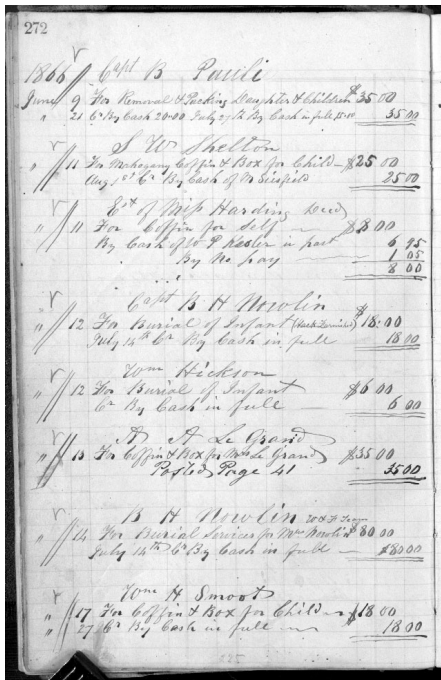 272
1866 Capt B Pauli
June 9 For Removal & Packing Daughter & Children $35 00
" 21 Cr By Cash 20.00 July 27th By Cash in full 15.00 35 00
S W Shelton
" 11 For Mahogany Coffin & Box for Child $25 00
Aug 1st Cr By Cash of M 25 00
Est of Miss Harding Decd
" 11 For Coffin for Self $8 00
By Cash of W P Kesler in part 6 95
By No pay 1 05
8 00
Capt B H Nowlin
" 12 For Burial of Infant (Hack Furnished) $18.00
July 14th Cr By Cash in full 18 00
Tom Hickson
" 12 For Burial of Infant $6 00
Cr By Cash in full 6 00
A Le Grand
" 13 For Coffin & Box for Mrs Le Grand $35 00
Posted Page 41 35 00
B H Nowlin
" 14 For Burial Services for Mrs Nowlin $80 00
July 14th Cr By Cash in full $80 00
Tom H Smoot
" 17 For Coffin & Box for Child $18 00
" 27 Cr By Cash in full 18 00